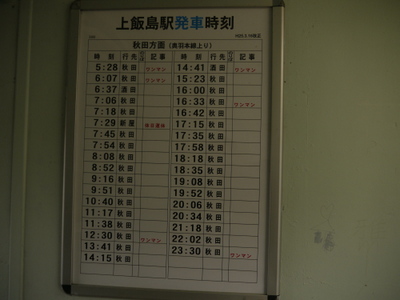 上飯島駅発車時刻
秋田方面（奥羽本線上り）
時刻 行先 記事 時刻 行先 記事
5:28 秋田 ワンマン 14:41 酒田
6:07 秋田 ワンマン 15:23 秋田
6:37 酒田 16:00 秋田
7:06 秋田 16:33 秋田 ワンマン
7:18 秋田 16:42 秋田
7:29 新屋 17:15 秋田
7:45 秋田 17:35 秋田
7:54 秋田 17:58 秋田
8:08 秋田 18:18 秋田
8:52 秋田 18:35 秋田
9:16 秋田 19:08 秋田
9:51 秋田 19:52 秋田
10:40 秋田 20:06 秋田
11:17 秋田 20:34 秋田
11:38 秋田 21:18 秋田
12:30 秋田 ワンマン 22:02 秋田
13:41 秋田 ワンマン 23:30 秋田 ワンマン
14:15 秋田